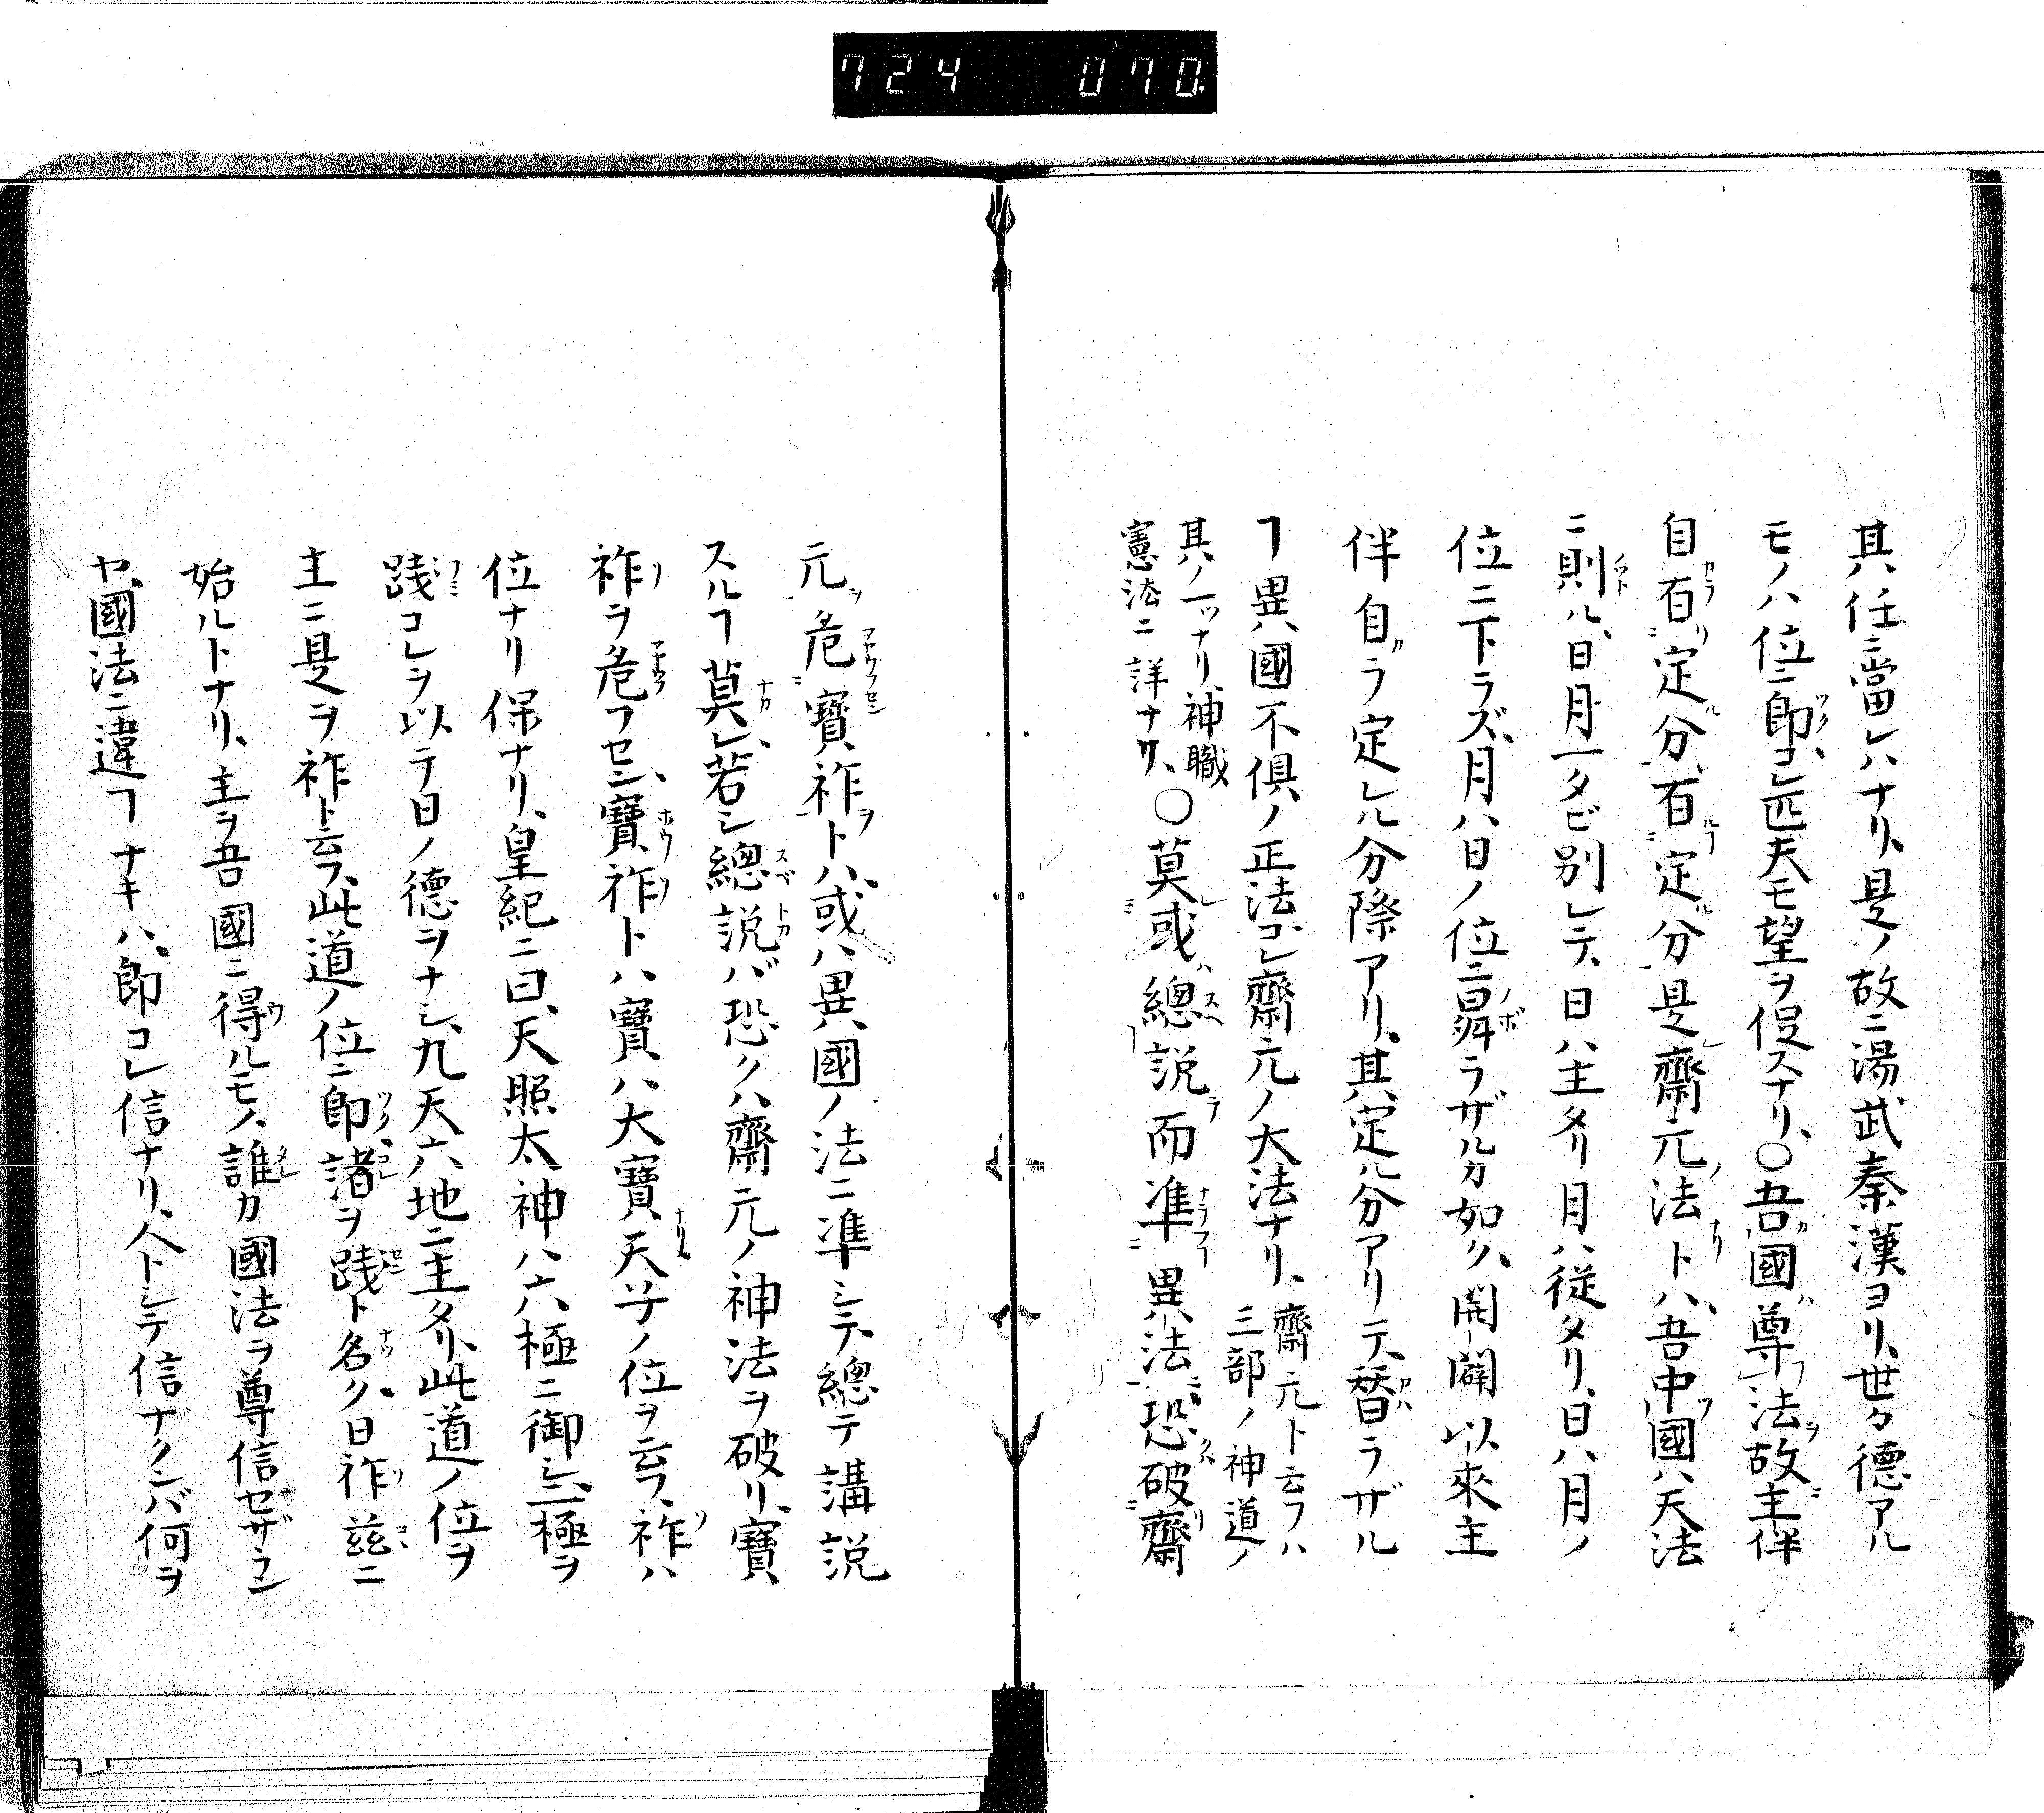 724 070.
其任ニ當レハナリ、是ノ故ニ湯武秦漢ヨリ、世々德アル
モノハ位ニ即、コレ匹夫モ望ヲ促スナリ、〇吾國尊法故主伴
自百定分、百定分是齋元法トハ、吾中國ハ天法
ニ則ル、日月一タビ別レテ、日ハ主タリ月ハ從タリ、日ハ月ノ
位ニ下ラズ、月ハ日ノ位ニ昇ラザルカ如ク、開闢以來主
伴自ラ定レル分際アリ、其定ル分アリテ、替ラザル
ヿ異國不倶ノ正法コレ齋元ノ大法ナリ、齋元ト云フハ
三部ノ神道ノ
其ノ一ツナリ、神職
憲法ニ詳ナリ、〇莫或總説而準異法恐破齋
元危寶祚トハ、或ハ異國ノ法ニ準シテ、總テ講説
スルヿ莫レ、若シ總説バ恐クハ齋元ノ神法ヲ破リ、寶
祚ヲ危フセン、寶祚トハ寶ハ大寶天子ノ位ヲ云フ、祚ハ
位ナリ保ナリ、皇紀ニ曰、天照太神ハ六極ニ御シ、三極ヲ
踐コレヲ以テ日ノ德ヲナシ、九天六地ニ主タリ、此道ノ位ヲ
主ニ是ヲ祚ト云フ、此道ノ位ニ即、諸ヲ踐ト名ク、日祚茲ニ
始ルトナリ、主ヲ吾國ニ得ルモノ、誰カ國法ヲ尊信セザラン
ヤ、國法ニ違フヿナキハ、即コレ信ナリ、人トシテ信ナクンバ何ヲ